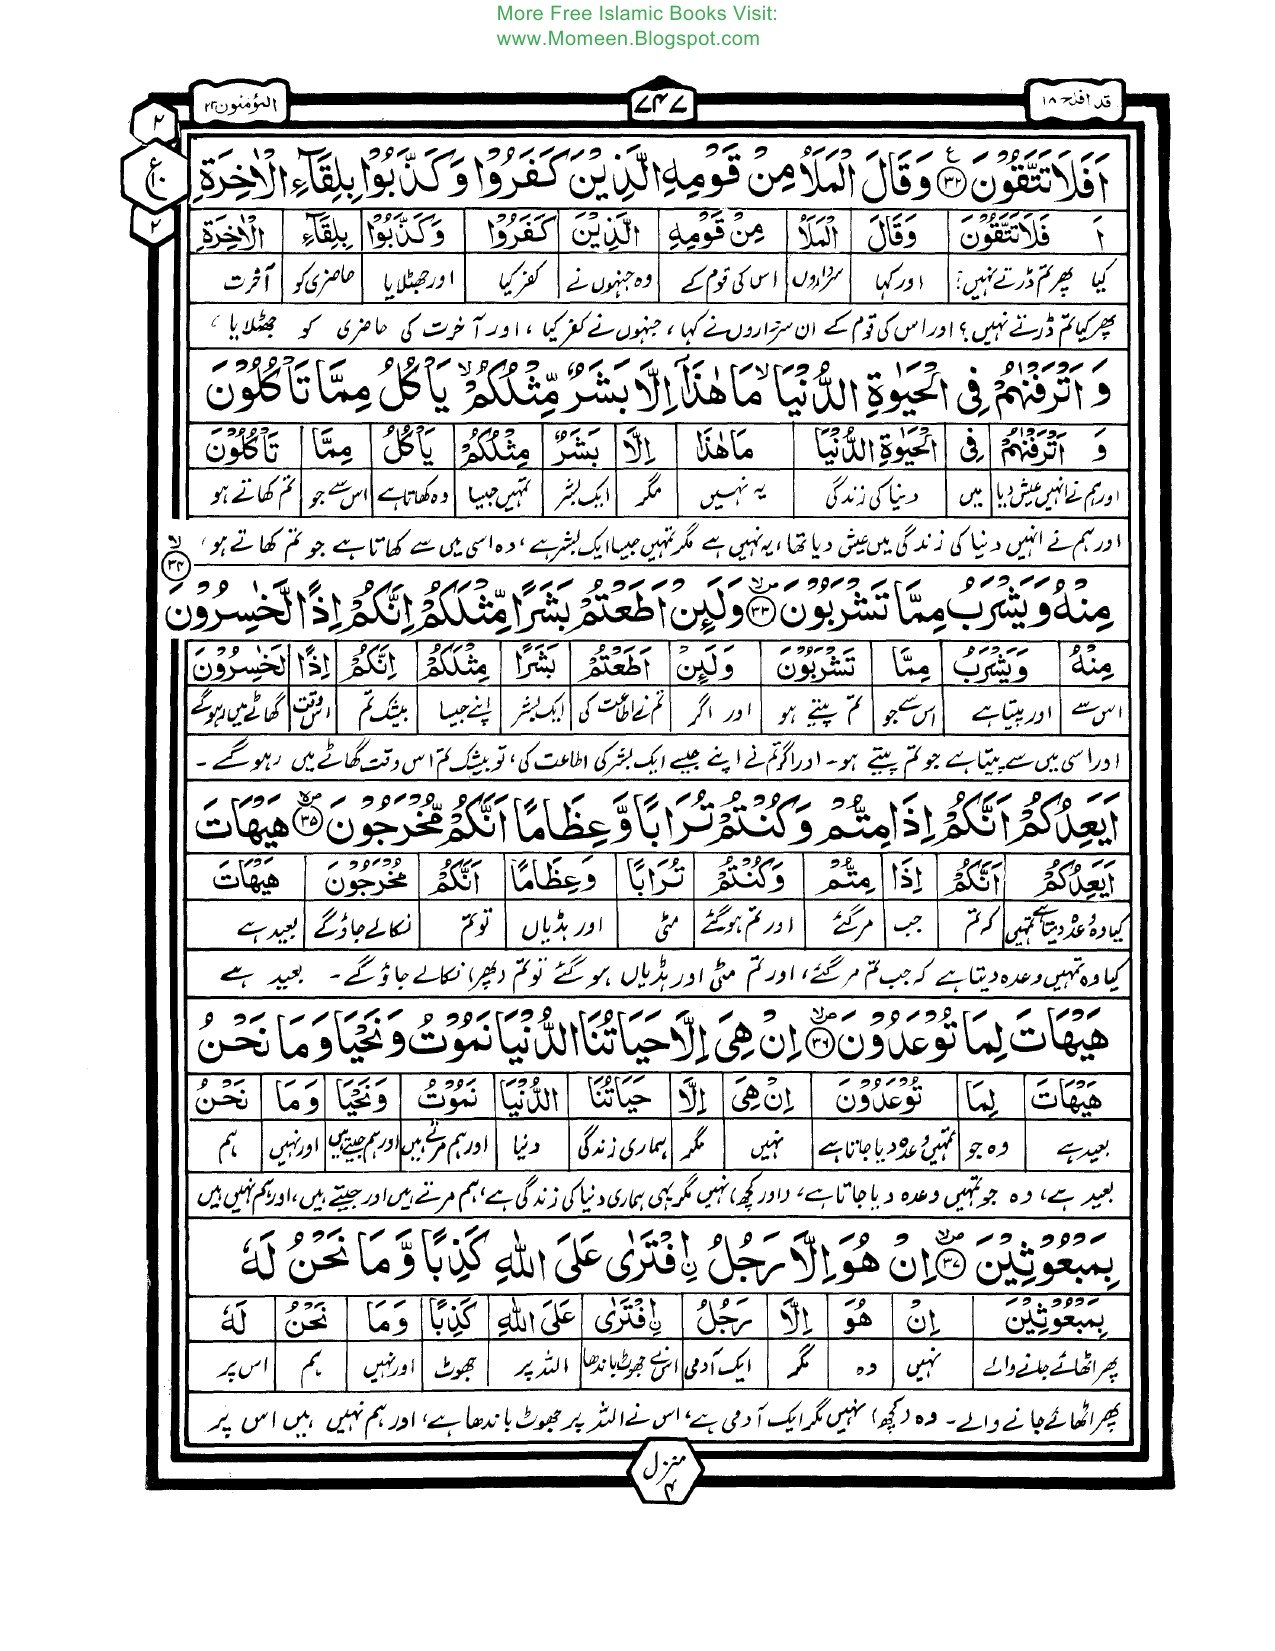 More Free Islamic Books Visit:
www.Momeen.Blogspot.com
قد افلح ۱۸
۷۴۷
المؤمنون ۲۳
۲
ع
۱۰
۲
اَفَلَا تَتَّقُوْنَ ﴿۳۲﴾ وَقَالَ الْمَلَاُ مِنْ قَوْمِهِ الَّذِيْنَ كَفَرُوْا وَكَذَّبُوْا بِلِقَآءِ الْاٰخِرَةِ
اَ فَلَا تَتَّقُوْنَ وَقَالَ الْمَلَاُ مِنْ قَوْمِهِ الَّذِيْنَ كَفَرُوْا وَكَذَّبُوْا بِلِقَآءِ الْاٰخِرَةِ
کیا پھر تم ڈرتے نہیں؟ اور کہا سرداروں اس کی قوم کے وہ جنہوں نے کفر کیا اور جھٹلایا حاضری کو آخرت
پھر کیا تم ڈرتے نہیں؟ اور اس کی قوم کے ان سرداروں نے کہا، جنہوں نے کفر کیا، اور آخرت کی حاضری کو جھٹلایا،
وَ اَتْرَفْنٰهُمْ فِى الْحَيٰوةِ الدُّنْيَا ۙ مَا هٰذَاۤ اِلَّا بَشَرٌ مِّثْلُكُمْ ۙ يَاْكُلُ مِمَّا تَاْكُلُوْنَ
وَ اَتْرَفْنٰهُمْ فِى الْحَيٰوةِ الدُّنْيَا مَا هٰذَا اِلَّا بَشَرٌ مِثْلُكُمْ يَاْكُلُ مِمَّا تَاْكُلُوْنَ
اور ہم نے انہیں عیش دیا میں دنیا کی زندگی یہ نہیں مگر ایک بشر تمہیں جیسا وہ کھاتا ہے اس سے جو تم کھاتے ہو
اور ہم نے انہیں دنیا کی زندگی میں عیش دیا تھا، یہ نہیں ہے مگر تمہیں جیسا ایک بشر ہے، وہ اسی میں سے کھاتا ہے جو تم کھاتے ہو،
مِنْهُ وَيَشْرَبُ مِمَّا تَشْرَبُوْنَ ﴿۳۳﴾ وَلَئِنْ اَطَعْتُمْ بَشَرًا مِّثْلَكُمْ اِنَّكُمْ اِذًا لَّخٰسِرُوْنَ ﴿۳۴﴾
مِنْهُ وَيَشْرَبُ مِمَّا تَشْرَبُوْنَ وَلَئِنْ اَطَعْتُمْ بَشَرًا مِثْلَكُمْ اِنَّكُمْ اِذًا لَخٰسِرُوْنَ
اس سے اور پیتا ہے اس سے جو تم پیتے ہو اور اگر تم نے اطاعت کی ایک بشر اپنے جیسا بیشک تم اس وقت گھاٹے میں رہو گے
اور اسی میں سے پیتا ہے جو تم پیتے ہو۔ اور اگر تم نے اپنے جیسے ایک بشر کی اطاعت کی، تو بیشک تم اس وقت گھاٹے میں رہو گے۔
اَيَعِدُكُمْ اَنَّكُمْ اِذَا مِتُّمْ وَكُنْتُمْ تُرَابًا وَّعِظَامًا اَنَّكُمْ مُّخْرَجُوْنَ ﴿۳۵﴾ هَيْهَاتَ
اَيَعِدُكُمْ اَنَّكُمْ اِذَا مِتُّمْ وَكُنْتُمْ تُرَابًا وَعِظَامًا اَنَّكُمْ مُخْرَجُوْنَ هَيْهَاتَ
کیا وہ وعدہ دیتا ہے تمہیں کہ تم جب مر گئے اور تم ہو گئے مٹی اور ہڈیاں تو تم نکالے جاؤ گے بعید ہے
کیا وہ تمہیں وعدہ دیتا ہے کہ جب تم مر گئے، اور تم مٹی اور ہڈیاں ہو گئے تو تم (پھر) نکالے جاؤ گے۔ بعید ہے
هَيْهَاتَ لِمَا تُوْعَدُوْنَ ﴿۳۶﴾ اِنْ هِىَ اِلَّا حَيَاتُنَا الدُّنْيَا نَمُوْتُ وَنَحْيَا وَمَا نَحْنُ
هَيْهَاتَ لِمَا تُوْعَدُوْنَ اِنْ هِىَ اِلَّا حَيَاتُنَا الدُّنْيَا نَمُوْتُ وَنَحْيَا وَمَا نَحْنُ
بعید ہے وہ جو تمہیں وعدہ دیا جاتا ہے نہیں مگر ہماری زندگی دنیا اور ہم مرتے ہیں اور ہم جیتے ہیں اور نہیں ہم
بعید ہے، وہ جو تمہیں وعدہ دیا جاتا ہے، (اور کچھ) نہیں مگر یہی ہماری دنیا کی زندگی ہے، ہم مرتے ہیں اور جیتے ہیں، اور ہم نہیں ہیں
بِمَبْعُوْثِيْنَ ﴿۳۷﴾ اِنْ هُوَ اِلَّا رَجُلُ ۨافْتَرٰى عَلَى اللّٰهِ كَذِبًا وَّمَا نَحْنُ لَهٗ
بِمَبْعُوْثِيْنَ اِنْ هُوَ اِلَّا رَجُلُ ۨافْتَرٰى عَلَى اللّٰهِ كَذِبًا وَمَا نَحْنُ لَهٗ
پھر اٹھائے جانے والے نہیں وہ مگر ایک آدمی اس نے جھوٹ باندھا اللہ پر جھوٹ اور نہیں ہم اس پر
پھر اٹھائے جانے والے۔ وہ (کچھ) نہیں مگر ایک آدمی ہے، اس نے اللہ پر جھوٹ باندھا ہے، اور ہم نہیں ہیں اس پر
منزل ۴